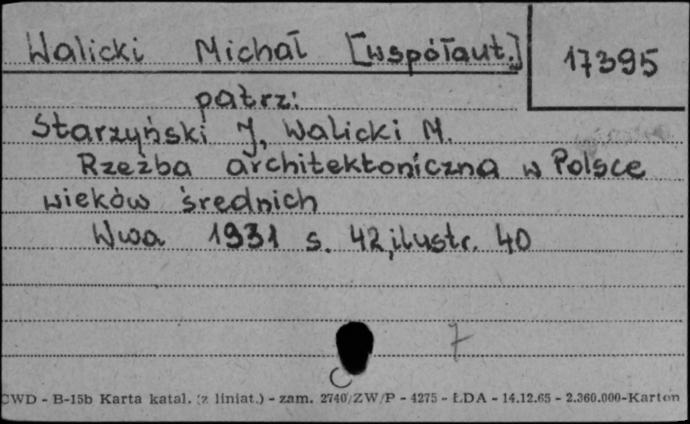 Walicki Michał [współaut.] 17395
patrz:
Starzyński J, Walicki M.
Rzeźba architektoniczna w Polsce
wieków średnich
Wwa 1931 s. 42, ilustr. 40
7
CWD - B-15b Karta katal. (z liniat.) - zam. 2740/ZW/P - 4275 - ŁDA - 14.12.65 - 2.360.000-Karton